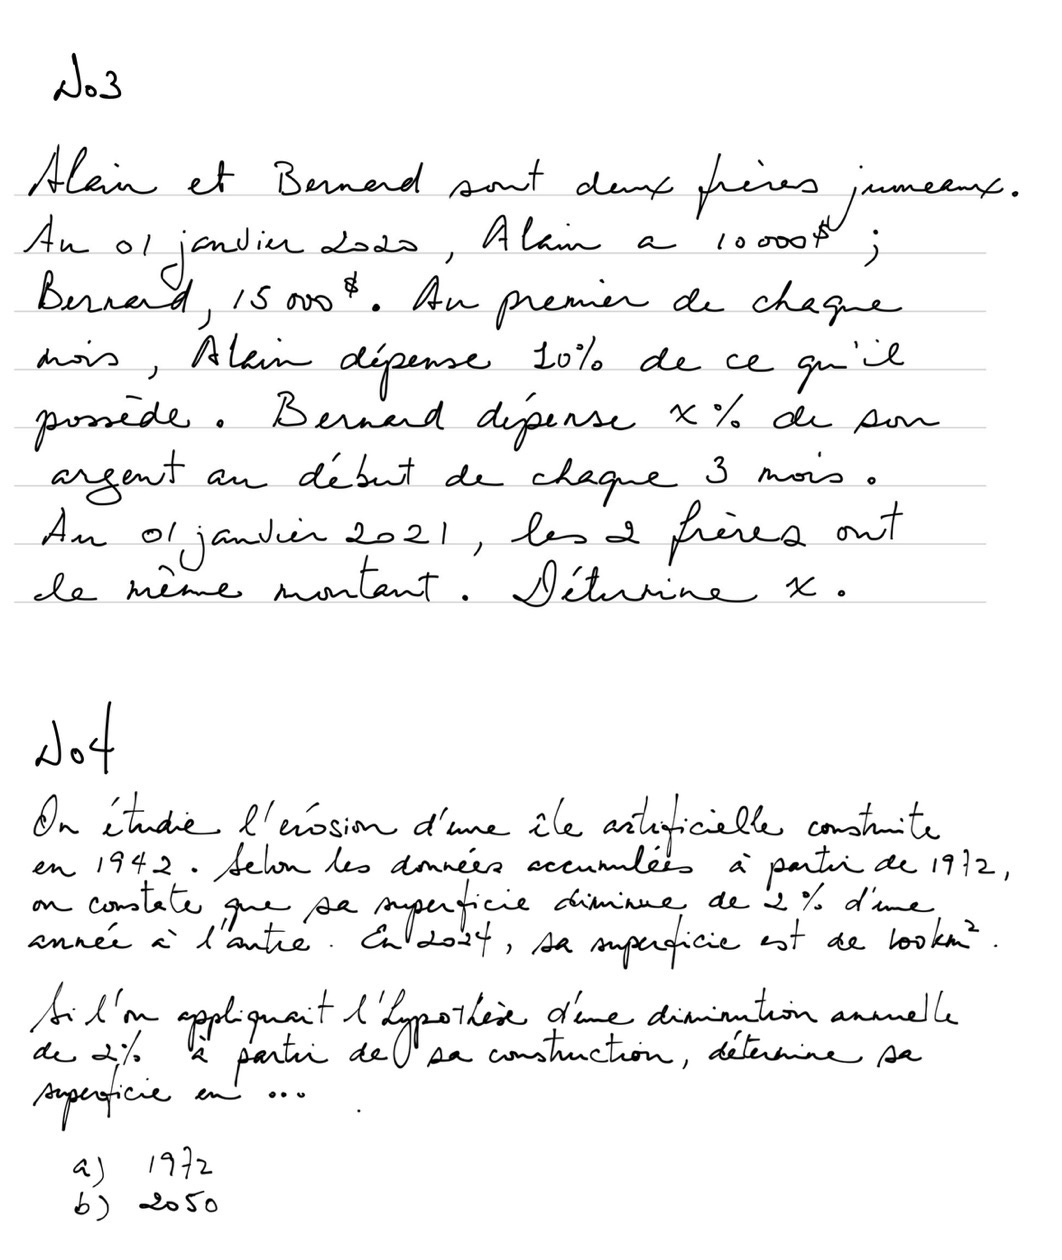 No3
Alain et Bernard sont deux frères jumeaux.
Au 01 janvier 2020, Alain a 10 000$ ;
Bernard, 15 000$. Au premier de chaque
mois, Alain dépense 10% de ce qu'il
possède. Bernard dépense x% de son
argent au début de chaque 3 mois.
Au 01 janvier 2021, les 2 frères ont
le même montant. Détermine x.
No4
On étudie l'érosion d'une île artificielle construite
en 1942. Selon les données accumulées à partir de 1972,
on constate que sa superficie diminue de 2% d'une
année à l'autre. En 2024, sa superficie est de 100km².
Si l'on appliquait l'hypothèse d'une diminution annuelle
de 2% à partir de sa construction, détermine sa
superficie en ...
a) 1972
b) 2050